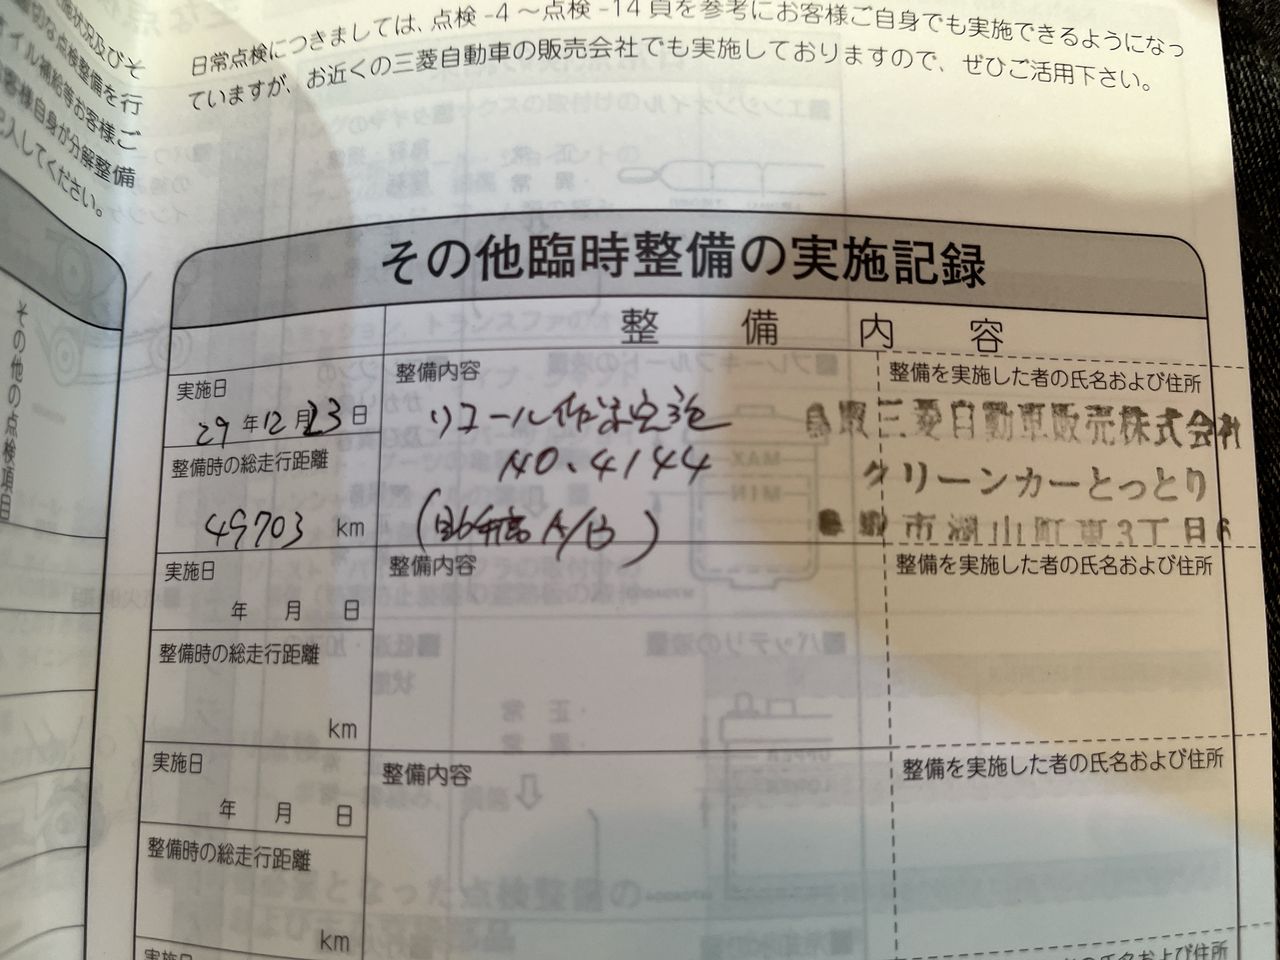 日常点検につきましては、点検-4～点検-14頁を参考にお客様ご自身でも実施できるようになっ
ていますが、お近くの三菱自動車の販売会社でも実施しておりますので、ぜひご活用下さい。
施状況及びそ
切な点検整備を行
イル補給等お客様ご
客様自身が分解整備
記入してください。
その他の点検項目
その他臨時整備の実施記録
整備内容
実施日
29年12月23日
整備時の総走行距離
49703 km
整備内容
リコール作業実施
NO.4144
(助手席 A/B)
整備を実施した者の氏名および住所
鳥取三菱自動車販売株式会社
クリーンカーとっとり
鳥取市湖山町東3丁目6
実施日
年 月 日
整備時の総走行距離
km
整備内容
整備を実施した者の氏名および住所
実施日
年 月 日
整備時の総走行距離
km
整備内容
整備を実施した者の氏名および住所
実施日
氏名および住所